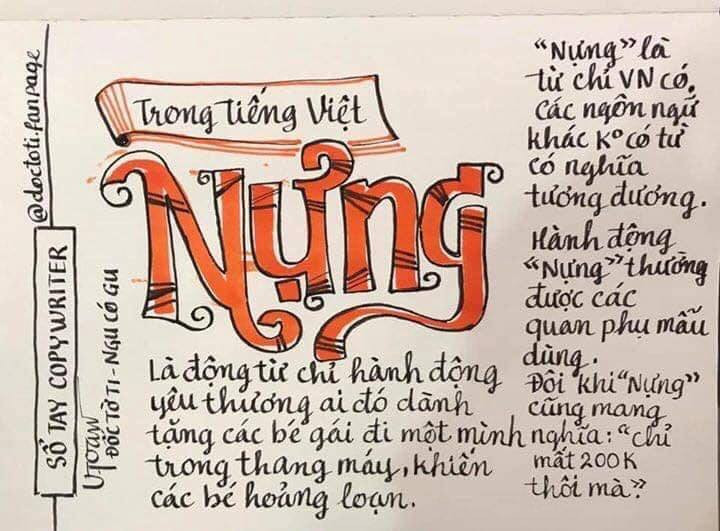 @doctoti.fanpage
SỔ TAY COPYWRITER
ĐỐC TỜ TI - NGU CÓ GU
Trong Tiếng Việt
Nựng
Là động từ chỉ hành động
yêu thương ai đó dành
tặng các bé gái đi một mình
trong thang máy, khiến
các bé hoảng loạn.
"Nựng" là
từ chỉ VN có,
các ngôn ngữ
khác Kº có từ
có nghĩa
tương đương.
Hành động
"Nựng" thường
được các
quan phụ mẫu
dùng.
Đôi khi "Nựng"
cũng mang
nghĩa: "chỉ
mất 200K
thôi mà"?